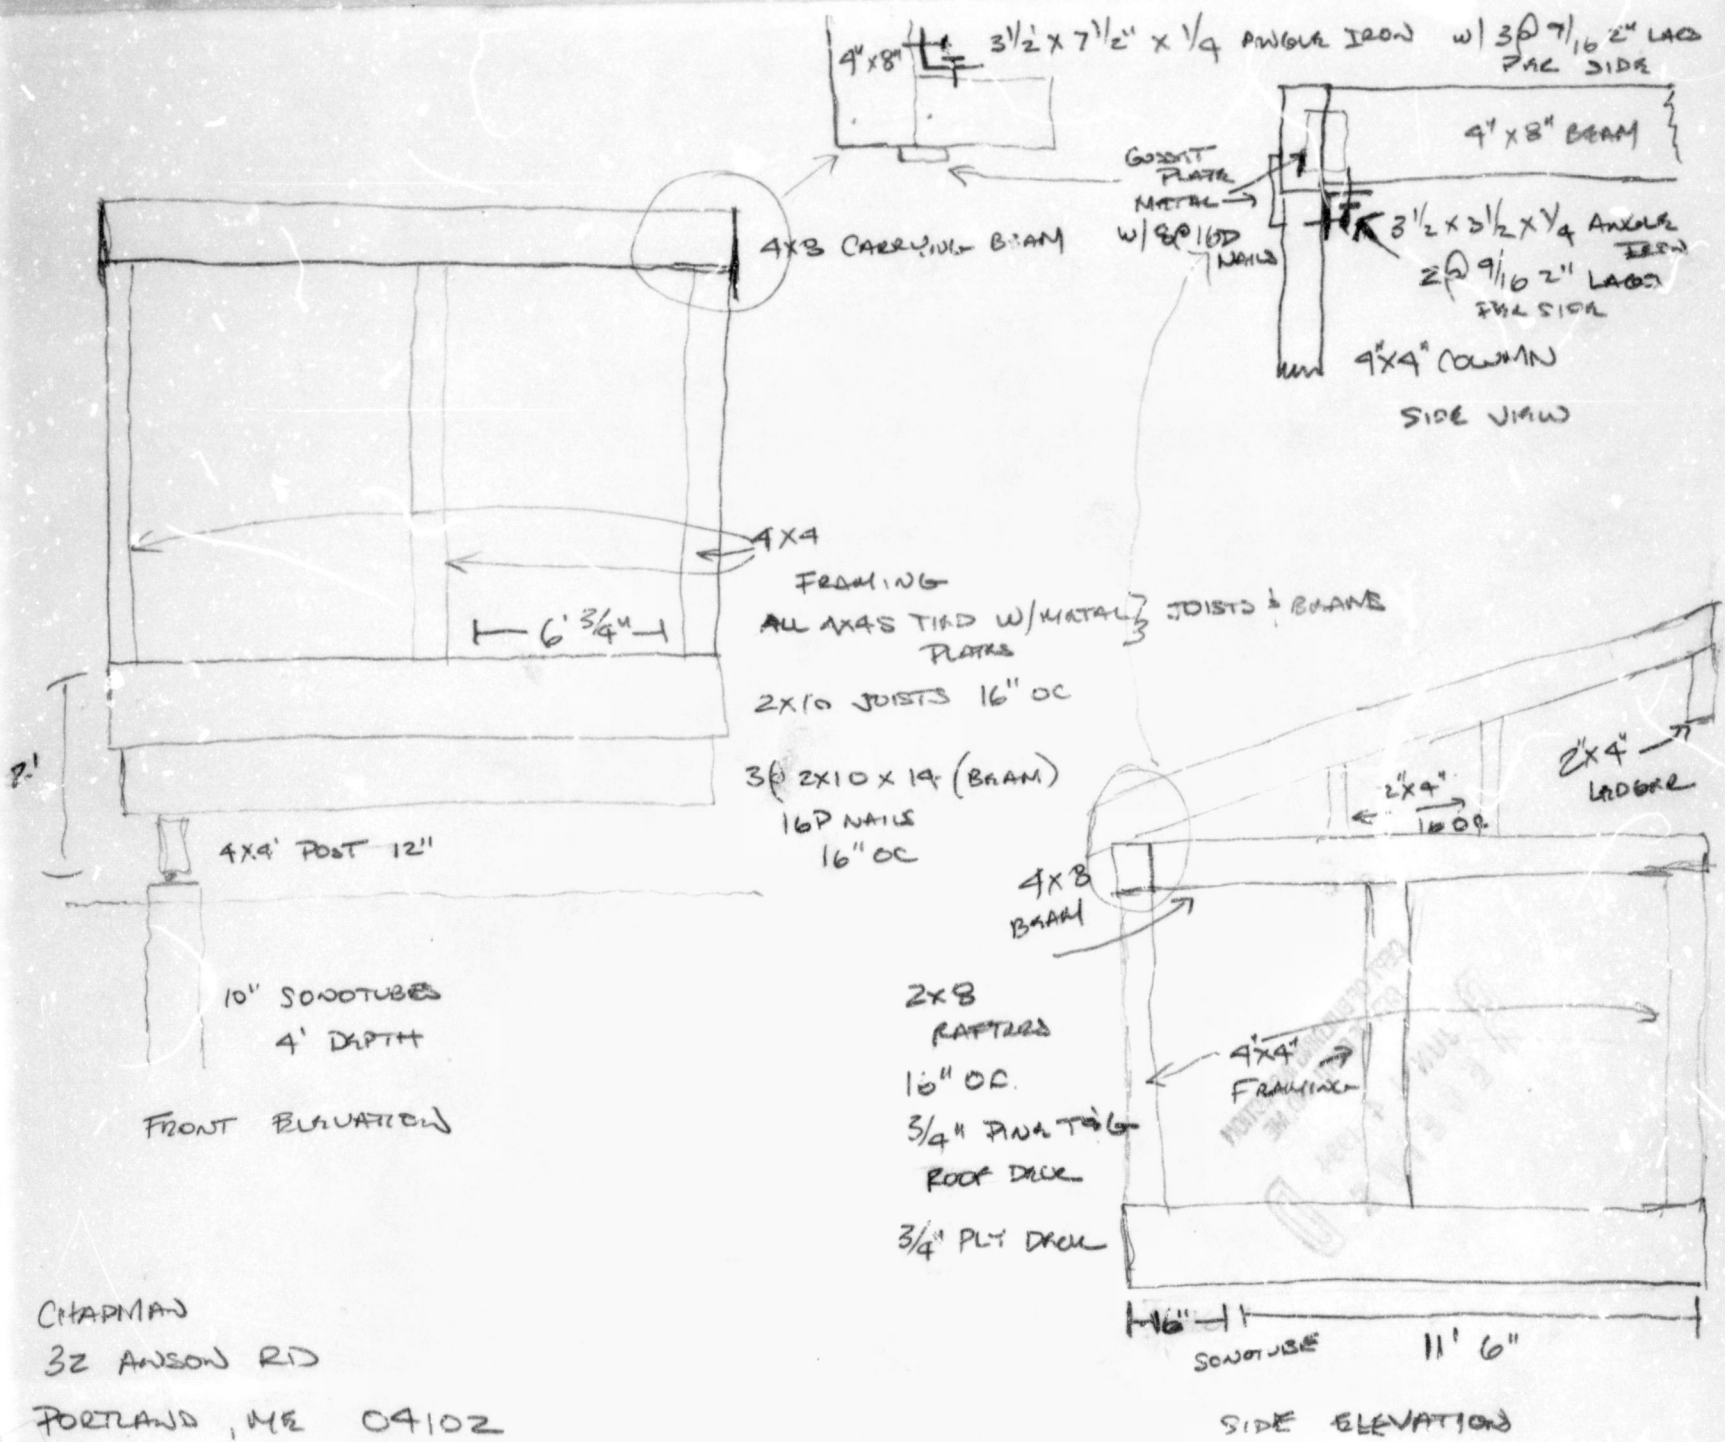 3 1/2 X 7 1/2" X 1/4 ANGLE IRON W/ 3@ 9/16 2" LAGS
PER SIDE
4"X8"
4" X 8" BEAM
GUSSIT
PLATE
METAL
W/ 8@ 16D
NAILS
3 1/2 X 3 1/2 X 1/4 ANGLE
IRON
2@ 9/16 2" LAGS
PER SIDE
4"X4" COLUMN
SIDE VIEW
4X8 CARRYING BEAM
4X4
FRAMING
ALL 4X4S TIED W/ METAL } JOISTS & BEAMS
PLATES
6' 3/4"
2X10 JOISTS 16" OC
2'
3@ 2X10 X 14 (BEAM)
16D NAILS
16" OC
4X4' POST 12"
10" SONOTUBES
4' DEPTH
FRONT ELEVATION
2"X4"
LEDGER
2"X4"
16 OC
4X8
BEAM
2X8
RAFTERS
16" OC.
3/4" PINE T&G
ROOF DECK
3/4" PLY DECK
4"X4"
FRAMING
16"
SONOTUBE
11' 6"
SIDE ELEVATION
CHAPMAN
32 ANSON RD
PORTLAND, ME 04102